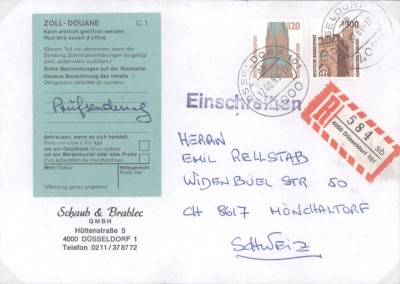 ZOLL-DOUANE C 1
Kann amtlich geöffnet werden
Peut être ouvert d'office
(Diesen Teil nur abtrennen, wenn der
Sendung Zollinhaltserklärungen beigefügt
sind, andernfalls ausfüllen.)
Siehe Bestimmungen auf der Rückseite
Genaue Bezeichnung des Inhalts
Désignation détaillée du contenu
Prüfsendung
Ankreuzen, wenn es sich handelt
Faire une croix s'il s'agit
um ein Geschenk (d'un cadeau
um ein Warenmuster oder eine Probe
(d'un échantillon de marchandises)
Wert/Valeur
Nettogewicht
Poids net
(Währung genau angeben)
Schaub & Brablec
GMBH
Hüttenstraße 5
4000 DÜSSELDORF 1
Telefon 0211/378772
120
300
DEUTSCHE BUNDESPOST
4000
Einschreiben
R
584 sb
4000 Düsseldorf 101
HERRN
EMIL RELLSTAB
WIDENBÜEL STR 50
CH 8617 MÖNCHALTORF
SCHWEIZ